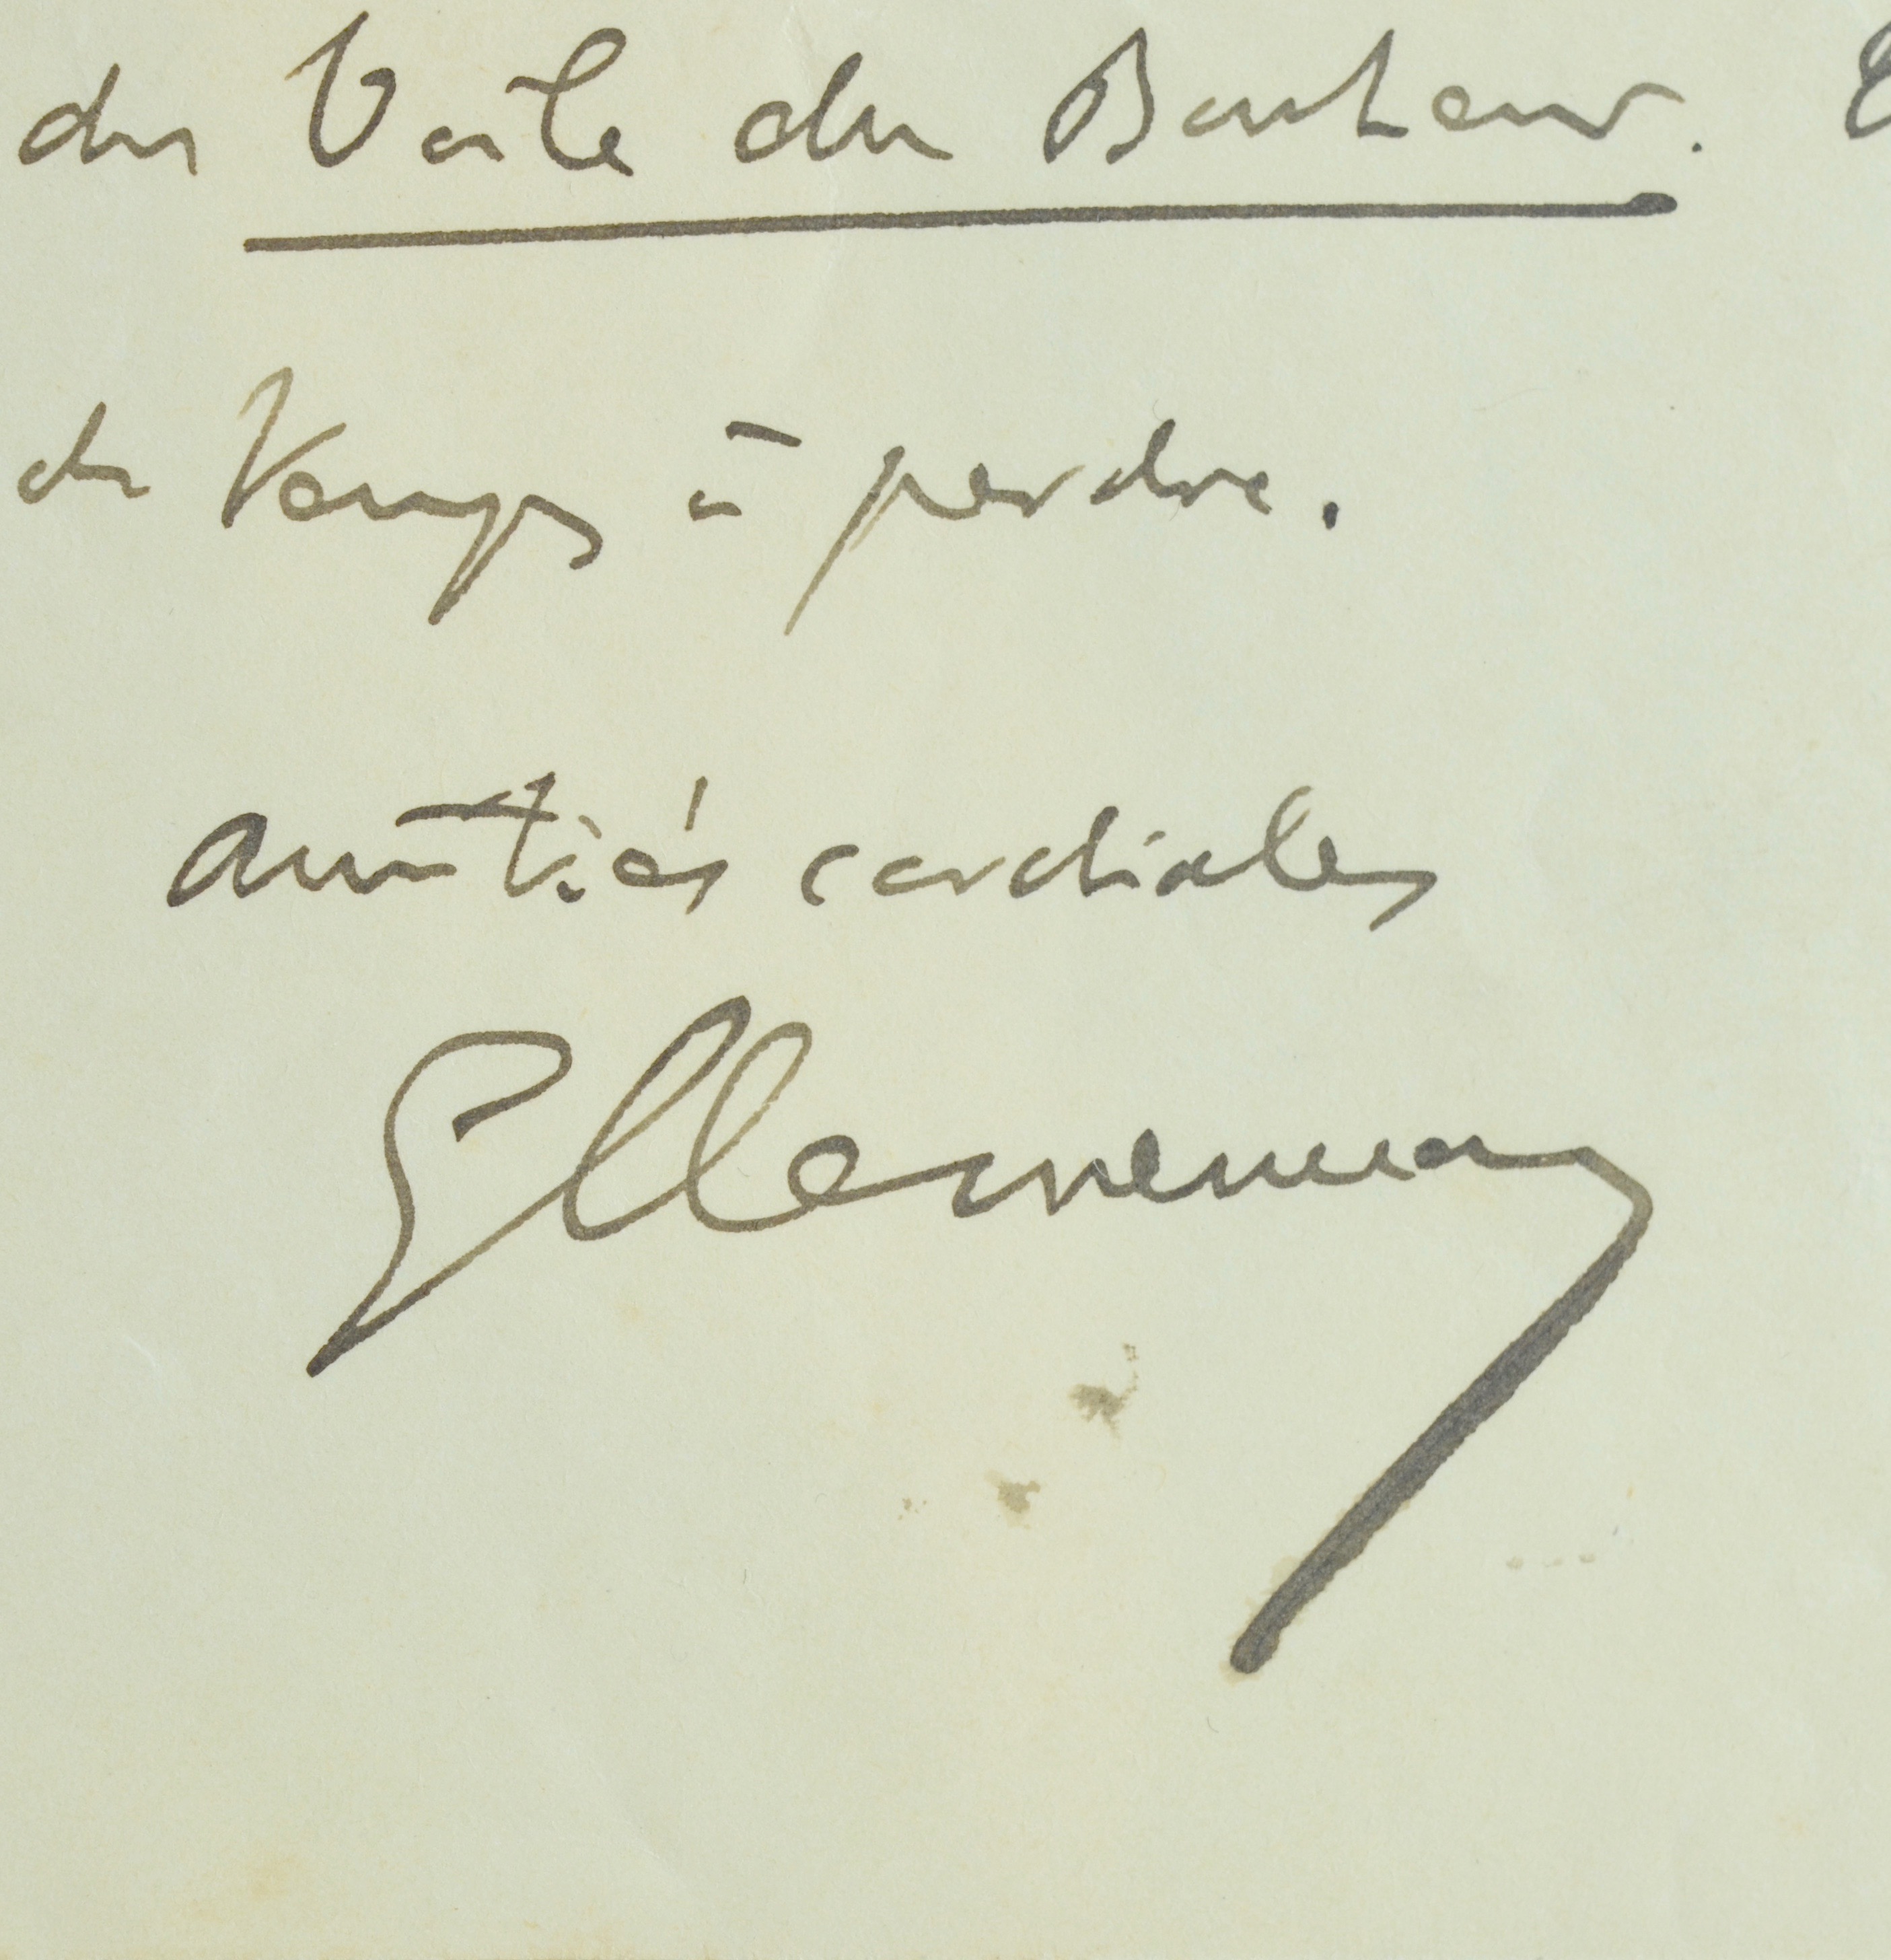 du Voile du Bonheur.
du temps à perdre.
amitiés cordiales
GClemenceau